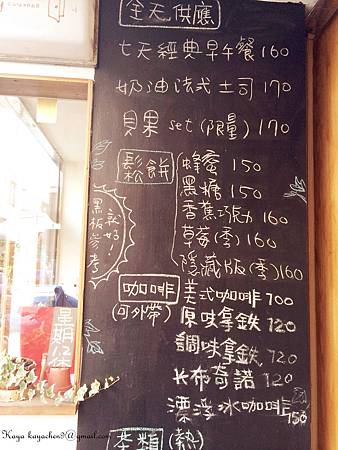 全天供應
七天經典早午餐 160
奶油法式土司 170
貝果 set (限量) 170
鬆餅
蜂蜜 150
黑糖 150
香蕉巧克力 160
草莓(季) 160
隱藏版(季) 160
黑板參考
就好!
咖啡
(可外帶)
美式咖啡 100
原味拿鐵 120
調味拿鐵 120
卡布奇諾 120
漂浮冰咖啡 150
茶類(熱)
星期堡
Kaya kayachen9@gmail.com